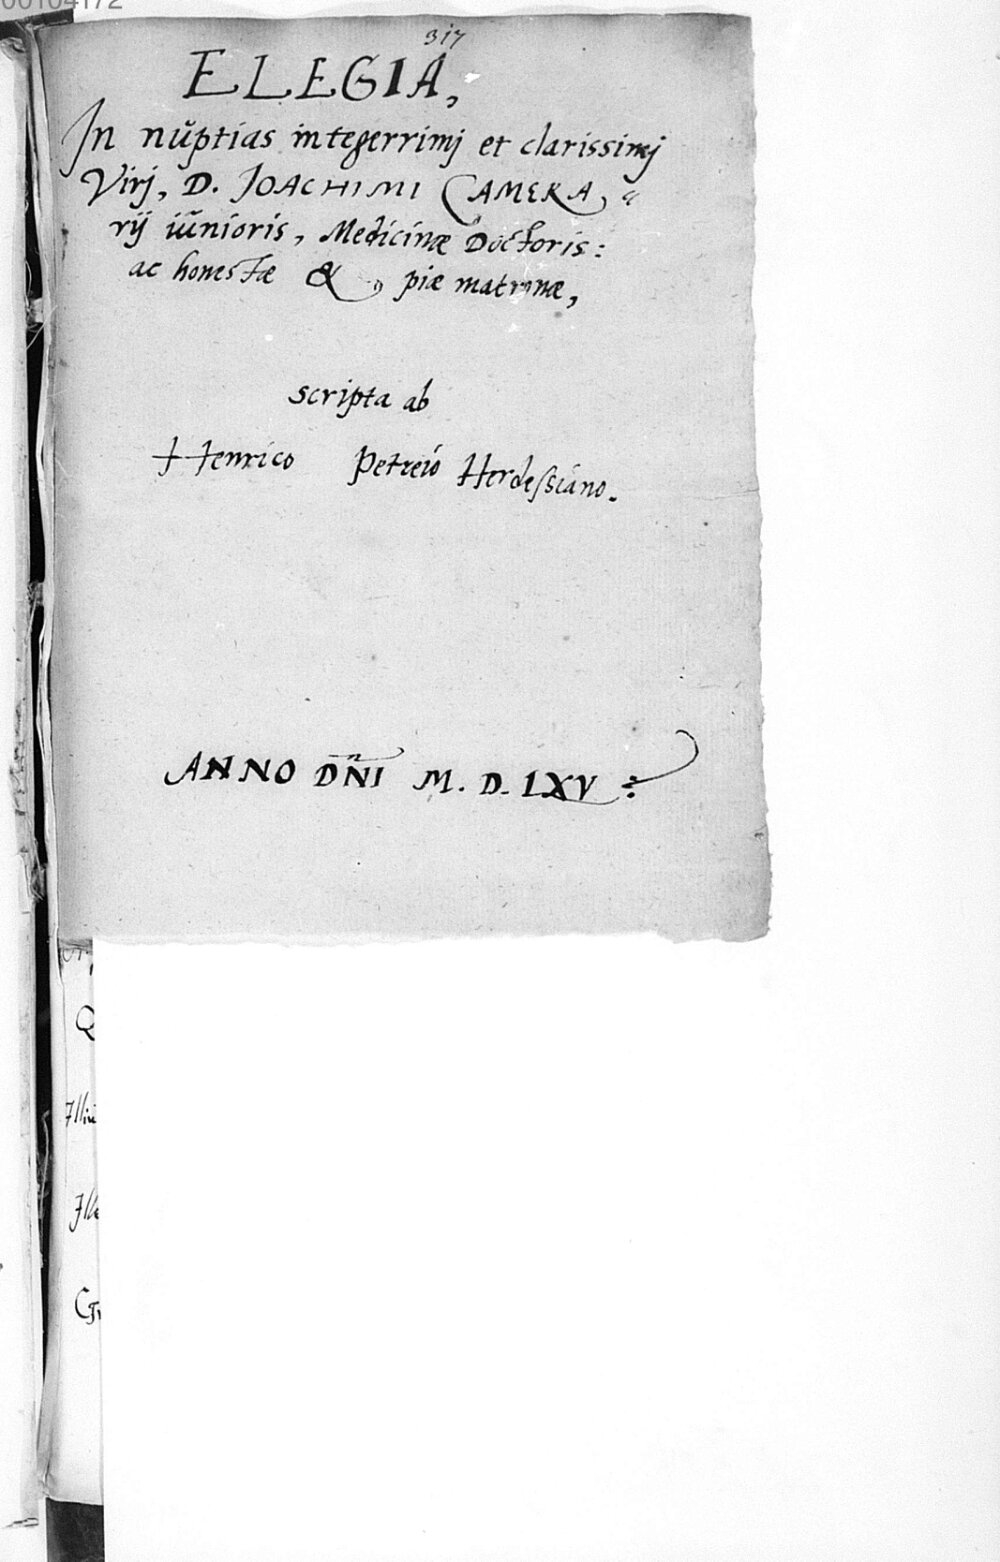 00104172
317
ELEGIA,
In nŭptias integerrimj et clarissimj
Virj, D. JOACHIMI CAMERA,
rij iŭnioris, Medicinæ Doctoris:
ac honestæ &, piæ matronæ,
scripta ab
Henrico Petreio Herdessiano.
ANNO DÑI M. D. LXV:
Q
Illiu
Ille